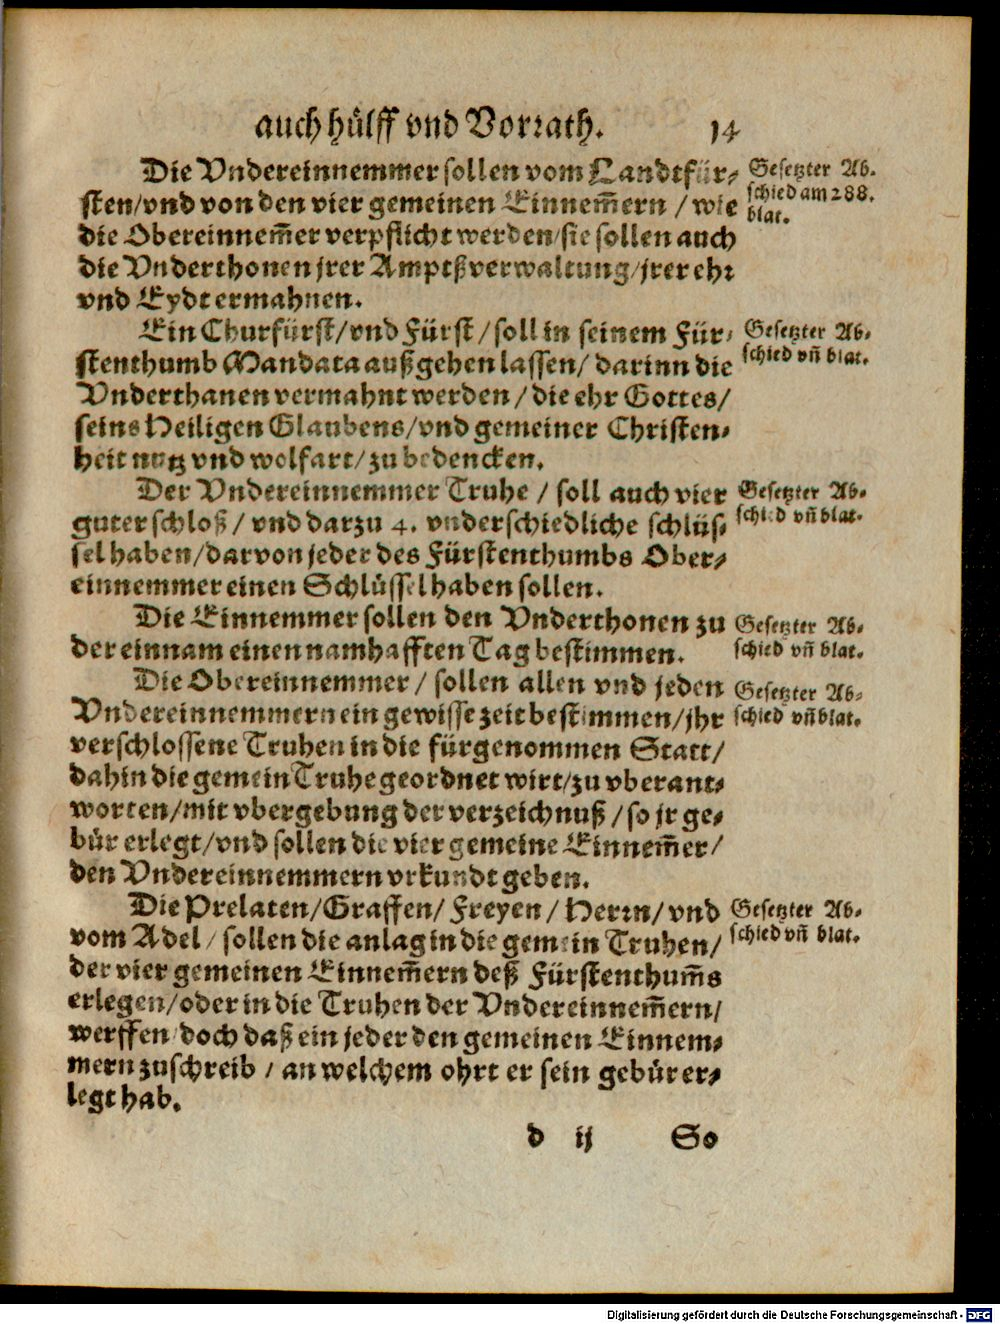 auch hülff vnd Vorrath. 14
Die Vndereinnemmer sollen vom Landtfür-
sten/vnd von den vier gemeinen Einnem̄ern / wie
die Obereinnem̄er verpflicht werden/sie sollen auch
die Vnderthonen jrer Amptßverwaltung/jrer ehr
vnd Eydt ermahnen.
Gesetzter Ab-
schied am 288.
blat.
Ein Churfürst/vnd Fürst/soll in seinem Für-
stenthumb Mandata außgehen lassen/ darinn die
Vnderthanen vermahnt werden / die ehr Gottes/
seins Heiligen Glaubens/vnd gemeiner Christen-
heit nutz vnd wolfart/zu bedencken.
Gesetzter Ab-
schied vn̄ blat.
Der Vndereinnemmer Truhe / soll auch vier
guter schloß/ vnd darzu 4. vnderschiedliche schlüs-
sel haben/darvon jeder des Fürstenthumbs Ober-
einnemmer einen Schlüssel haben sollen.
Gesetzter Ab-
schied vn̄ blat.
Die Einnemmer sollen den Vnderthonen zu
der einnam einen namhafften Tag bestimmen.
Gesetzter Ab-
schied vn̄ blat.
Die Obereinnemmer / sollen allen vnd jeden
Vndereinnemmern ein gewisse zeit bestimmen/jhr
verschlossene Truhen in die fürgenommen Statt/
dahin die gemein Truhe geordnet wirt/zu vberant-
worten/mit vbergebung der verzeichnuß / so jr ge-
bür erlegt/vnd sollen die vier gemeine Einnem̄er/
den Vndereinnemmern vrkundt geben.
Gesetzter Ab-
schied vn̄ blat.
Die Prelaten/Graffen/ Freyen / Herrn/ vnd
vom Adel / sollen die anlag in die gemein Truhen/
der vier gemeinen Einnem̄ern deß Fürstenthum̄s
erlegen/oder in die Truhen der Vndereinnem̄ern/
werffen/doch daß ein jeder den gemeinen Einnem-
mern zuschreib / an welchem ohrt er sein gebür er-
legt hab.
Gesetzter Ab-
schied vn̄ blat.
d ij So
Digitalisierung gefördert durch die Deutsche Forschungsgemeinschaft - DFG